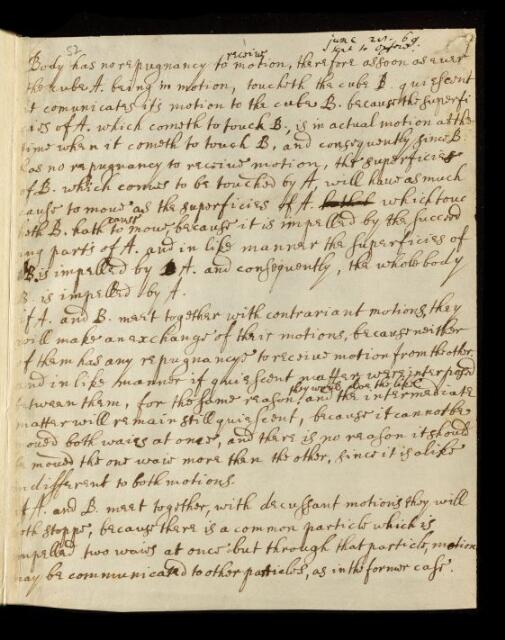 52
june 21. 69
sent to Oxford.
receive
Body has no repugnancy to motion, therefore as soon as ever
the cube A. being in motion, toucheth the cube B. quiescent
it comunicates its motion to the cube B. because the superfi
cies of A. which cometh to touch B., is in actual motion at the
time when it cometh to touch B. and consequently since B.
has no repugnancy to receive motion, the superficies
of B. which comes to be touched by A, will have as much
cause to move as the superficies of A. which touc
cause
eth B. hath to move, because it is impelled by the succeed
ing parts of A. and in like manner the superficies of
B. is impelled by A. and consequently, the whole body
B. is impelled by A.
if A. and B. meet together with contrariant motions, they
will make an exchange of their motions, because neither
of them has any repugnancye to receive motion from the other,
and in like manner if quiescent matter were interposed
they would doe the like
between them, for the same reason, and the intermediate
matter will remain still quiescent, because it cannot be
moved both waies at once, and there is no reason it should
be moved the one waie more then the other, since it is alike
indifferent to both motions.
if A. and B. meet together, with decussant motions they will
both stoppe, because there is a common particle which is
impelled two waies at once but through that particle, motion
may be communicated to other particles, as in the former case.